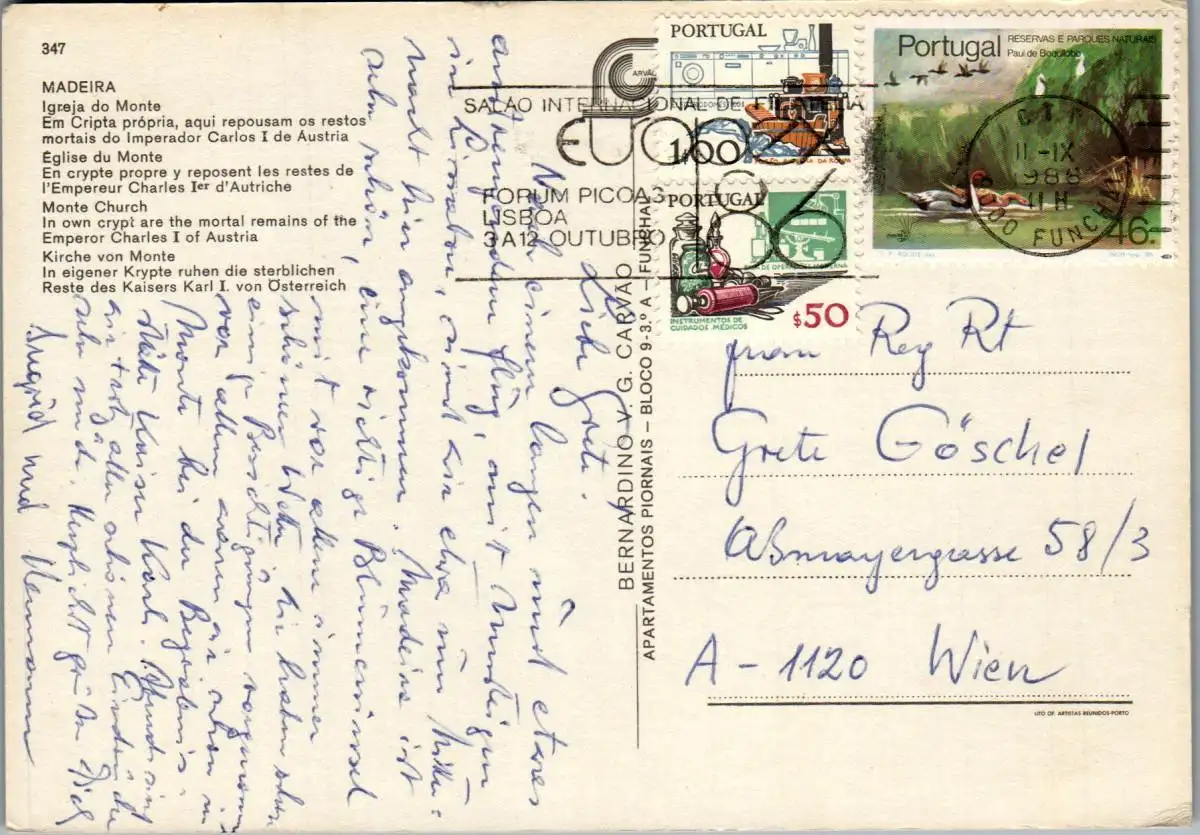 347
MADEIRA
Igreja do Monte
Em Cripta própria, aqui repousam os restos
mortais do Imperador Carlos I de Austria
Église du Monte
En crypte propre y reposent les restes de
l'Empereur Charles Ier d'Autriche
Monte Church
In own crypt are the mortal remains of the
Emperor Charles I of Austria
Kirche von Monte
In eigener Krypte ruhen die sterblichen
Reste des Kaisers Karl I. von Österreich
Liebe Grete.
Nach einem langen und etwas
anstrengendem Flug, mit
in Lissabon, sind wir etwa um Mitter-
nacht hier angekommen. Madeira ist
sehr schön, eine richtige Blumeninsel
mit vor allem immer
schönen Wetter. Wir haben schon
einige Besichtigungen
vor allem waren wir schon in
Monte bei der
Kaiser Karl. sind
wir trotz aller schönen Eindrücke
sehr müde. Herzlichst grüßen Dich
Ingrid und Hermann
BERNARDINO V. G. CARVÃO
APARTAMENTOS PIORNAIS – BLOCO 9-3.º A – FUNCHAL
PORTUGAL
1,00
PORTUGAL
INSTRUMENTOS DE
CUIDADOS MÉDICOS
$50
Portugal
RESERVAS E PARQUES NATURAIS
Paul de Boquilobo
46.
SALÃO INTERNACIONAL DE FILATELIA
EUROPEX 86
FORUM PICOAS
LISBOA
3 A 12 OUTUBRO
11-IX
1986
11 H
FUNCHAL
Frau Reg Rt
Grete Göschel
Aßmayergasse 58/3
A - 1120 Wien
LITO OF. ARTISTAS REUNIDOS-PORTO